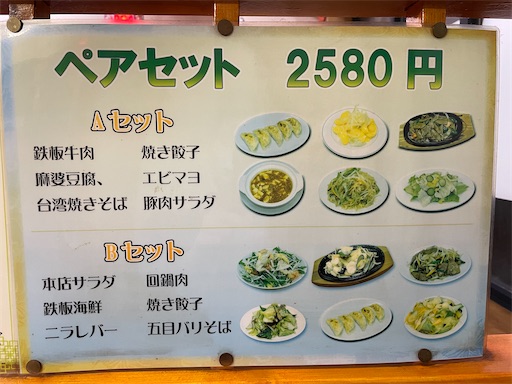 ペアセット 2580円
Aセット
鉄板牛肉 焼き餃子
麻婆豆腐、 エビマヨ
台湾焼きそば 豚肉サラダ
Bセット
本店サラダ 回鍋肉
鉄板海鮮 焼き餃子
ニラレバー 五目バリそば